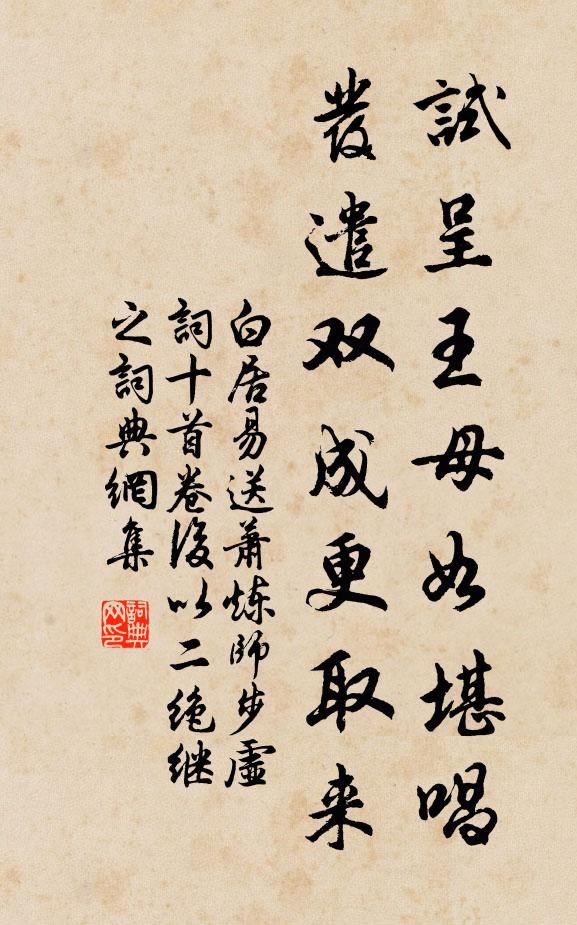 試呈王母如堪唱
發遣双成更取来
白居易送萧炼师步虚
詞十首卷後以二绝继
之詞典網集
詞典网印